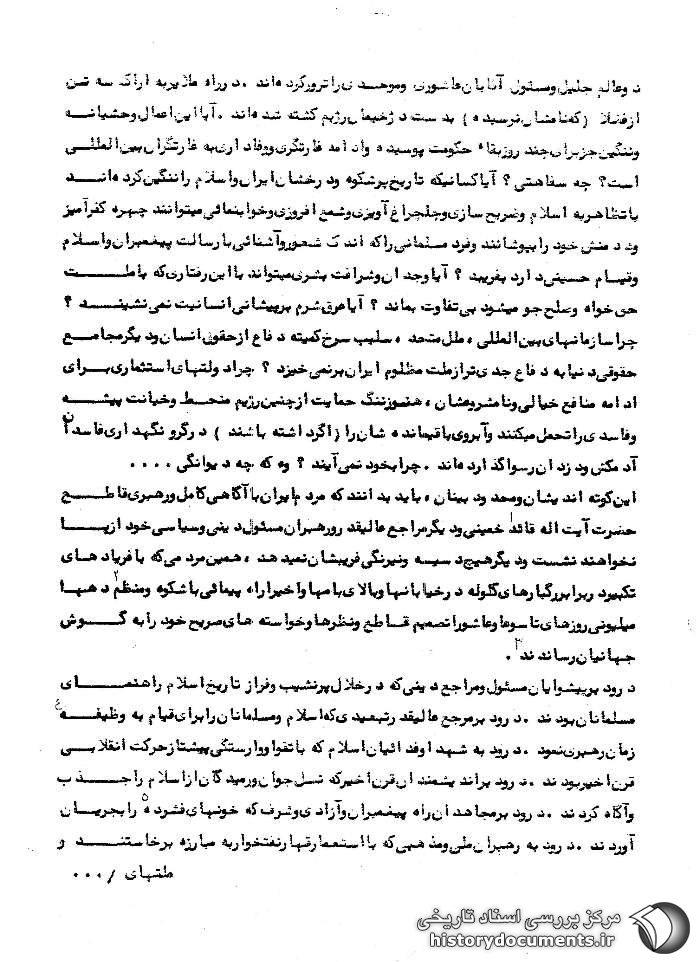 دوعالم جلیل ومسئول آقایان عاشوری وموحدی را ترورکرده‌اند . درراه ملایر به اراک سه تن
از فضلا ( که نامشان نرسیده ) بدست دژخیمان رژیم کشته شده‌اند . آیا این اعمال وحشیانه
وننگین جز برای چند روز بقاء حکومت پوسیده وادامه غارتگری ووفاداری به غارتگران بین‌المللی
است ؟ چه سفاهتی ؟ آیا کسانیکه تاریخ پرشکوه ودرخشان ایران واسلام را ننگین کرده‌اند
با تظاهر به اسلام وضریح سازی وچلچراغ آویزی وشمع افروزی وخوابنمائی میتوانند چهره کفرآمیز
ودد منش خود را بپوشانند وفرد مسلمانی را که اندک شعور وآشنائی با رسالت پیغمبران واسلام
وقیام حسینی دارد بفریبد ؟ آیا وجدان وشرافت بشری میتواند با این رفتاری که با ملت
حق خواه وصلح جو میشود بی تفاوت بماند ؟ آیا عرق شرم بر پیشانی انسانیت نمی نشیند ؟
چرا سازمانهای بین‌المللی ، ملل متحد ، صلیب سرخ کمیته دفاع از حقوق انسان ودیگر مجامع
حقوقی دنیا به دفاع جدی تر از ملت مظلوم ایران برنمی خیزد ؟ چرا دولتهای استثماری برای
ادامه منافع خیالی ونامشروعشان ، هنوز ننگ حمایت از چنین رژیم منحط وخیانت پیشه
وفاسدی را تحمل میکنند وآبروی باقیمانده شان را ( اگر داشته باشند ) در گرو نگهداری فاسدان
آدمکش ودزدان رسوا گذارده‌اند . چرا بخود نمی آیند ؟ وه که چه دیوانگی . . . .
این کوته اندیشان ومحدود بینان ، باید بدانند که مردم ایران با آگاهی کامل ورهبری قاطع
حضرت آیت اله قائد ۱ خمینی ودیگر مراجع عالیقدر ورهبران مسئول دینی وسیاسی خود از پا
نخواهند نشست ودیگر هیچ دسیسه ونیرنگی فریبشان نمیدهد ، همین مردمی که با فریادهای
تکبیر در برابر رگبارهای گلوله در خیابانها وبالای بامها واخیرا راه پیمائی باشکوه ومنظم ۲ دهها
میلیونی روزهای تاسوعا وعاشورا تصمیم قاطع ونظرها وخواسته های صریح خود را به گوش
جهانیان رساندند ۳ .
درود بر پیشوایان مسئول ومراجع دینی که در خلال پرنشیب وفراز تاریخ اسلام راهنمای
مسلمانان بودند . درود بر مرجع عالیقدر تبعیدی که اسلام ومسلمانان را برای قیام به وظیفه ۴
زمان رهبری نمود . درود به شهدا وفدائیان اسلام که با تقوا ووارستگی پیشتاز حرکت انقلابی
قرن اخیر بودند . درود براندیشمندان قرن اخیر که نسل جوان ورمیدگان از اسلام را جذب
وآگاه کردند . درود بر مجاهدان راه پیغمبران وآزادی وشرف که خونهای فشرده ۵ را بجریان
آوردند . درود به رهبران ملی ومذهبی که با استعمار تقهار نفتخوار به مبارزه برخاستند و
ملتهای / . . .
مرکز بررسی اسناد تاریخی
historydocuments.ir